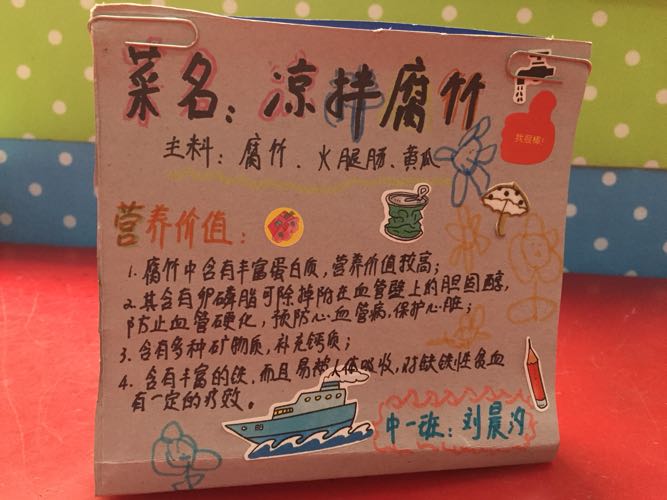 菜名：凉拌腐竹
主料：腐竹、火腿肠、黄瓜
我很棒！
营养价值：
1.腐竹中含有丰富蛋白质，营养价值较高；
2.其含有卵磷脂可除掉附在血管壁上的胆固醇，
防止血管硬化，预防心血管病，保护心脏；
3.含有多种矿物质，补充钙质；
4.含有丰富的铁，而且易被人体吸收，对缺铁性贫血
有一定的疗效。
中一班：刘晨汐